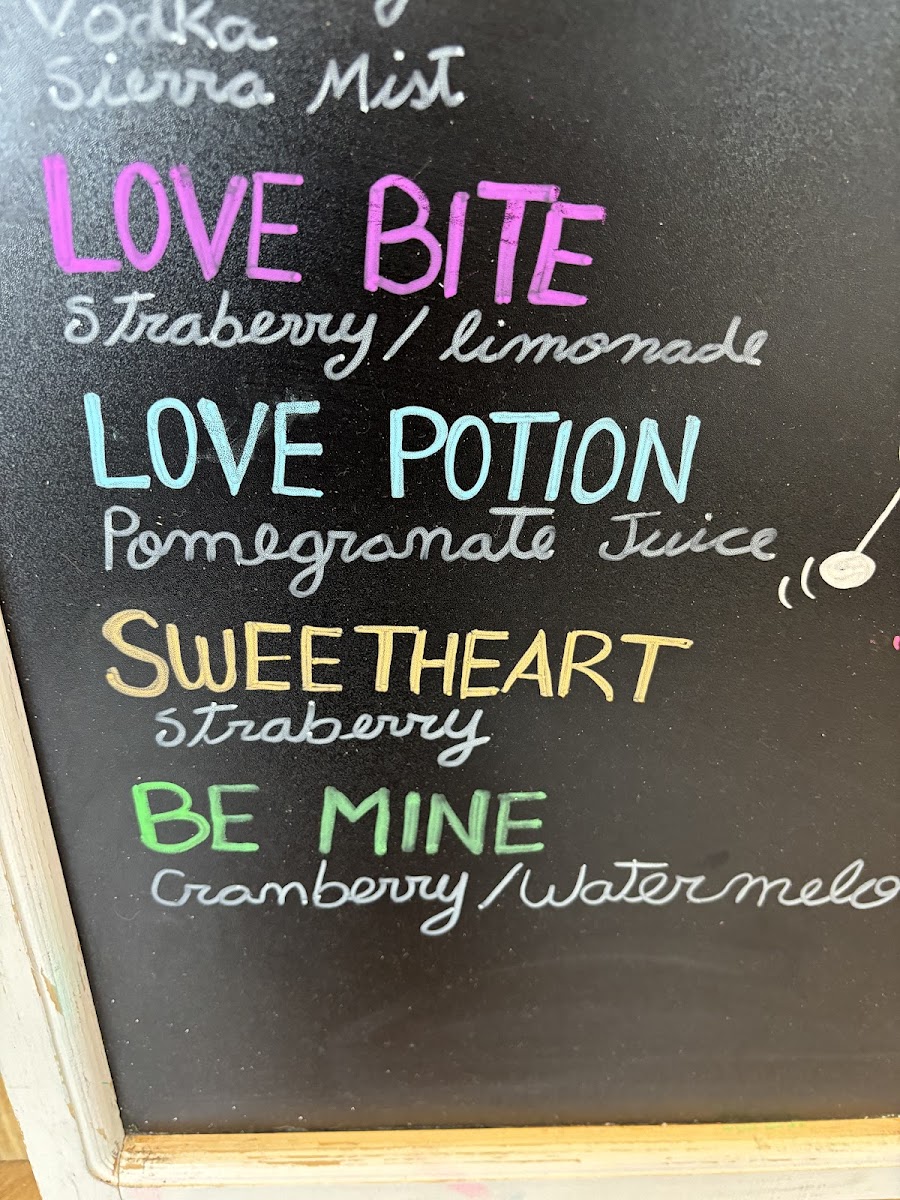 Vodka
Sierra Mist
LOVE BITE
Straberry/limonade
LOVE POTION
Pomegranate Juice
SWEETHEART
Straberry
BE MINE
Cranberry/Watermelo